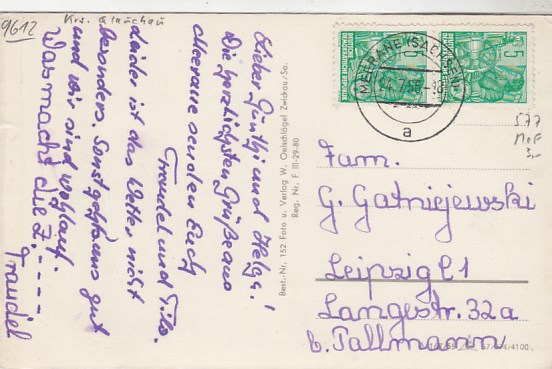 9612
Krs. Glauchau
Lieber Günthi und Helga!
Die herzlichsten Grüße aus
Meerane senden Euch
Traudel und Tilo.
Leider ist das Wetter nicht
besonders. Sonst geht's uns gut
und wir sind wohlauf.
Was macht die Z.----
Traudel
Best.-Nr. 152 Foto u. Verlag W. Oelschlägel Zwickau/Sa.
Reg. Nr. F III-29-80
5
5
DEUTSCHE DEMOKRATISCHE REPUBLIK
MEERANE (SACHSEN)
a
577
MeF
3,-
Fam.
G. Gatniejewski
Leipzig C1
Langestr. 32a
b. Tallmann